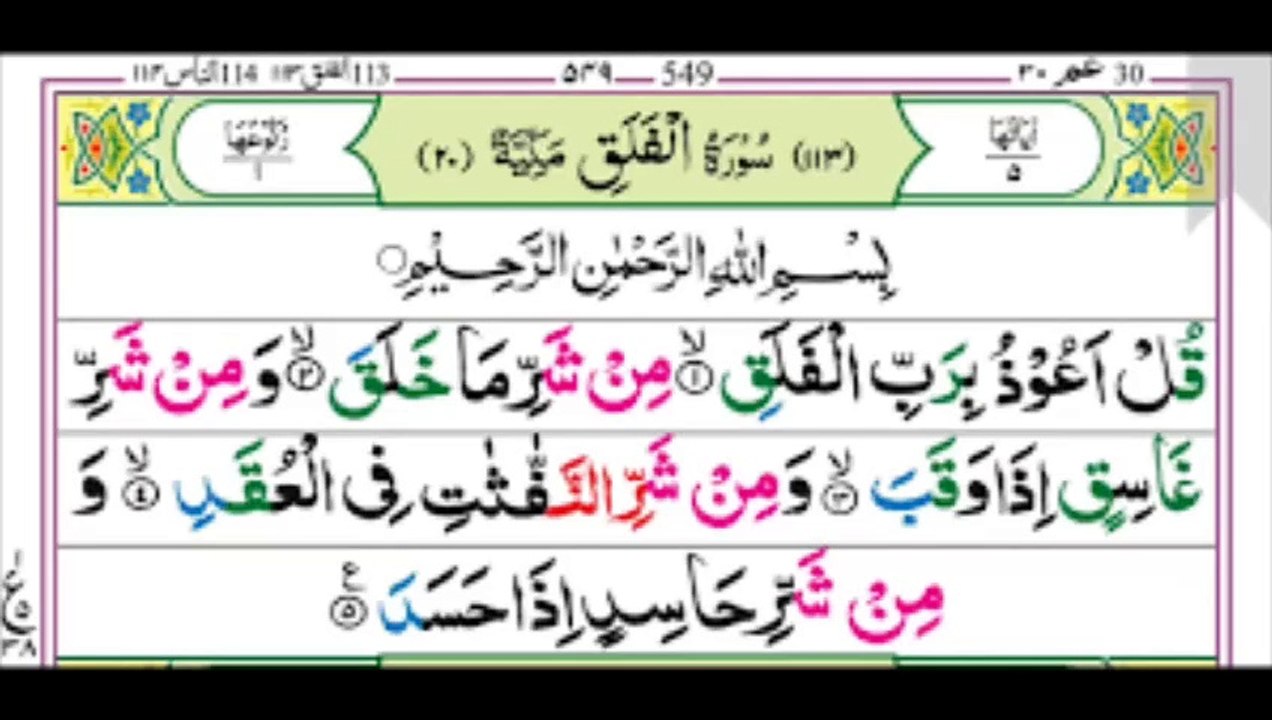 30 عم ٣٠ 549 ٥٤٩ 113 الفلق ١١٣ 114 الناس ١١٤
اٰیَاتُہَا ٥ (١١٣) سُوْرَةُ الْفَلَقِ مَدَنِیَّةٌ (٢٠) رُکُوْعُہَا ١
بِسْمِ اللهِ الرَّحْمٰنِ الرَّحِيْمِ
قُلْ اَعُوْذُ بِرَبِّ الْفَلَقِ ۙ﴿١﴾ مِنْ شَرِّ مَا خَلَقَ ۙ﴿٢﴾ وَ مِنْ شَرِّ
غَاسِقٍ اِذَا وَقَبَ ۙ﴿٣﴾ وَ مِنْ شَرِّ النَّفّٰثٰتِ فِى الْعُقَدِ ۙ﴿٤﴾ وَ
مِنْ شَرِّ حَاسِدٍ اِذَا حَسَدَ ﴿٥﴾ ع